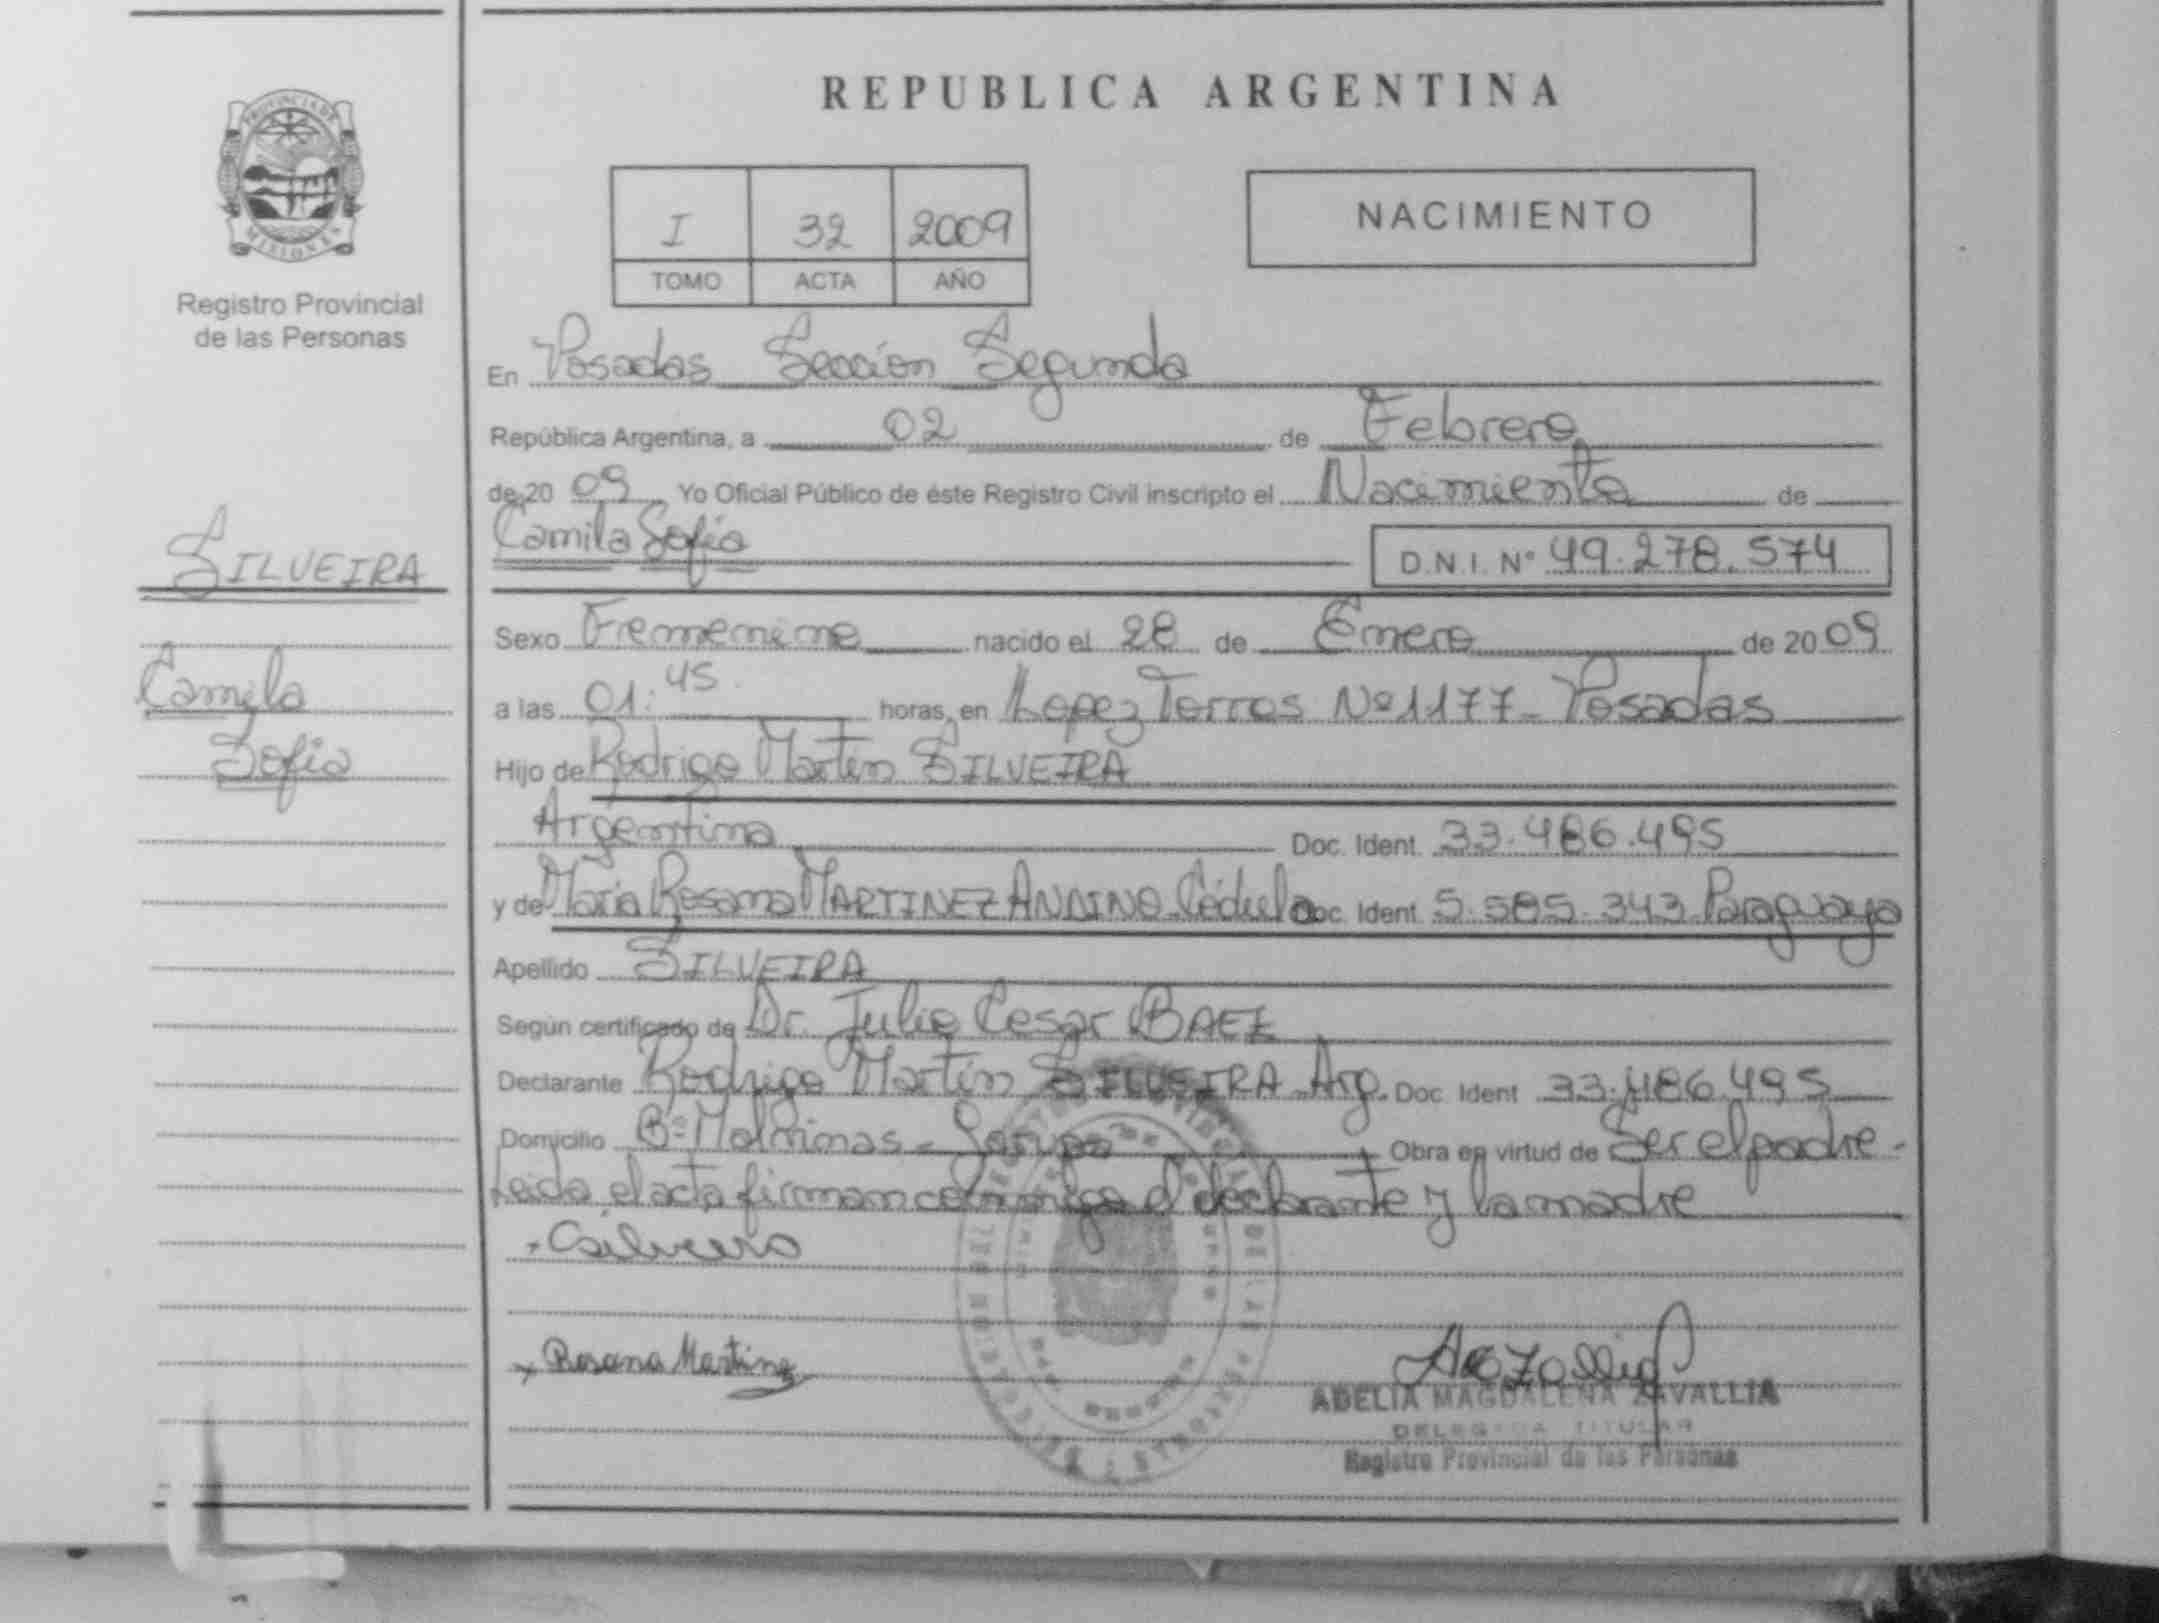 REPUBLICA ARGENTINA
PROVINCIA DE
MISIONES
Registro Provincial
de las Personas
I 32 2009
TOMO ACTA AÑO
NACIMIENTO
En Posadas Sección Segunda
República Argentina, a 02 de Febrero
de 20 09 Yo Oficial Público de éste Registro Civil inscripto el Nacimiento de
Camila Sofia
D.N.I. Nº 49.278.574
SILVEIRA
Camila
Sofia
Sexo Femenino nacido el 28 de Enero de 20 09
a las 01:45 horas, en Lopez Torres Nº 1177 - Posadas
Hijo de Rodrigo Martin SILVEIRA
Argentino Doc. Ident. 33.486.495
y de Maria Rosana MARTINEZ ANDINO Cédula Doc. Ident. 5.585.343 Paraguaya
Apellido SILVEIRA
Según certificado de Dr. Julio Cesar BAEZ
Declarante Rodrigo Martin SILVEIRA - Arg. Doc. Ident 33.486.495
Domicilio Bº Malvinas - Garupa Obra en virtud de Ser el padre -
Leida el acta firman conmigo el declarante y la madre
Rosana Martinez
ADELIA MAGDALENA ZAVALLIA
DELEGADA TITULAR
Registro Provincial de las Personas